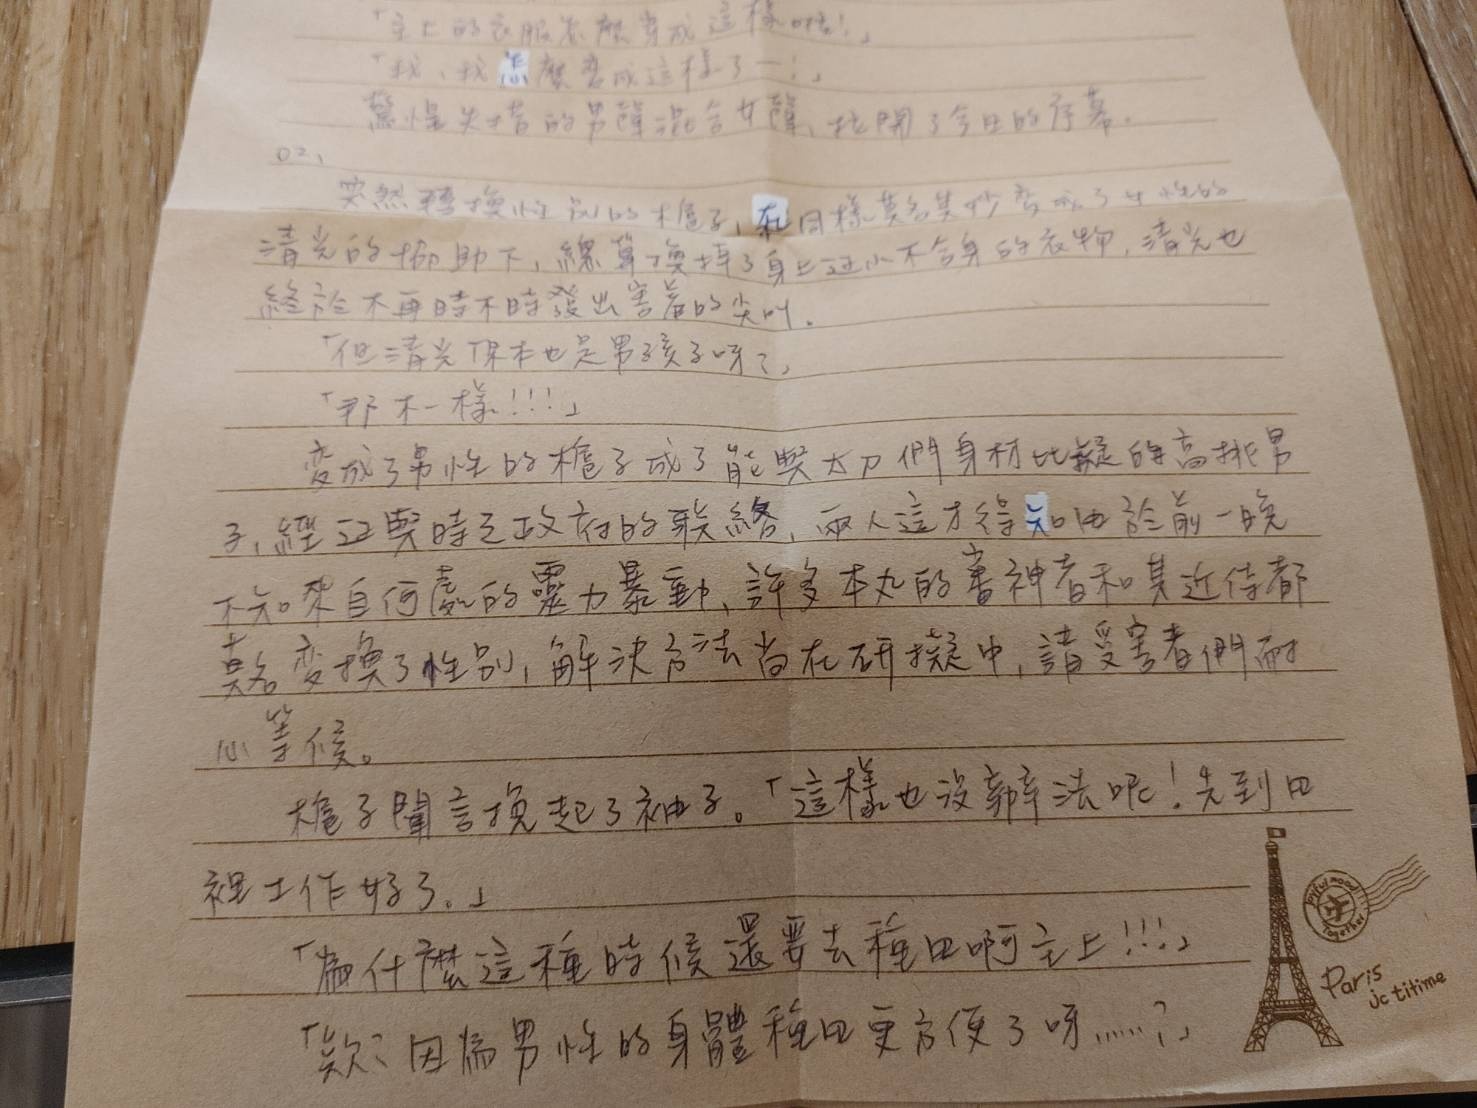 「主上的衣服怎麼穿成這樣啦!」
「我、我怎麼變成這樣了—!」
驚惶失措的男聲混合女聲,拉開了今日的序幕。
02、
突然轉換性別的櫓子,在同樣莫名其妙變成了女性的
清光的協助下,總算換掉了身上過小不合身的衣物,清光也
終於不再時不時發出害羞的尖叫。
「但清光原本也是男孩子呀?」
「那不一樣!!!」
變成了男性的櫓子成了能與太刀們身材比擬的高挑男
子,經過與時之政府的聯絡,兩人這才得知由於前一晚
不知來自何處的靈力暴動,許多本丸的審神者和其近侍都
莫名變換了性別,解決方法尚在研擬中,請受害者們耐
心等候。
櫓子聞言挽起了袖子。「這樣也沒辦法呢!先到田
裡工作好了。」
「為什麼這種時候還要去種田啊主上!!!」
「欸?因為男性的身體種田更方便了呀……?」
joyful mood together
Paris
jc titime